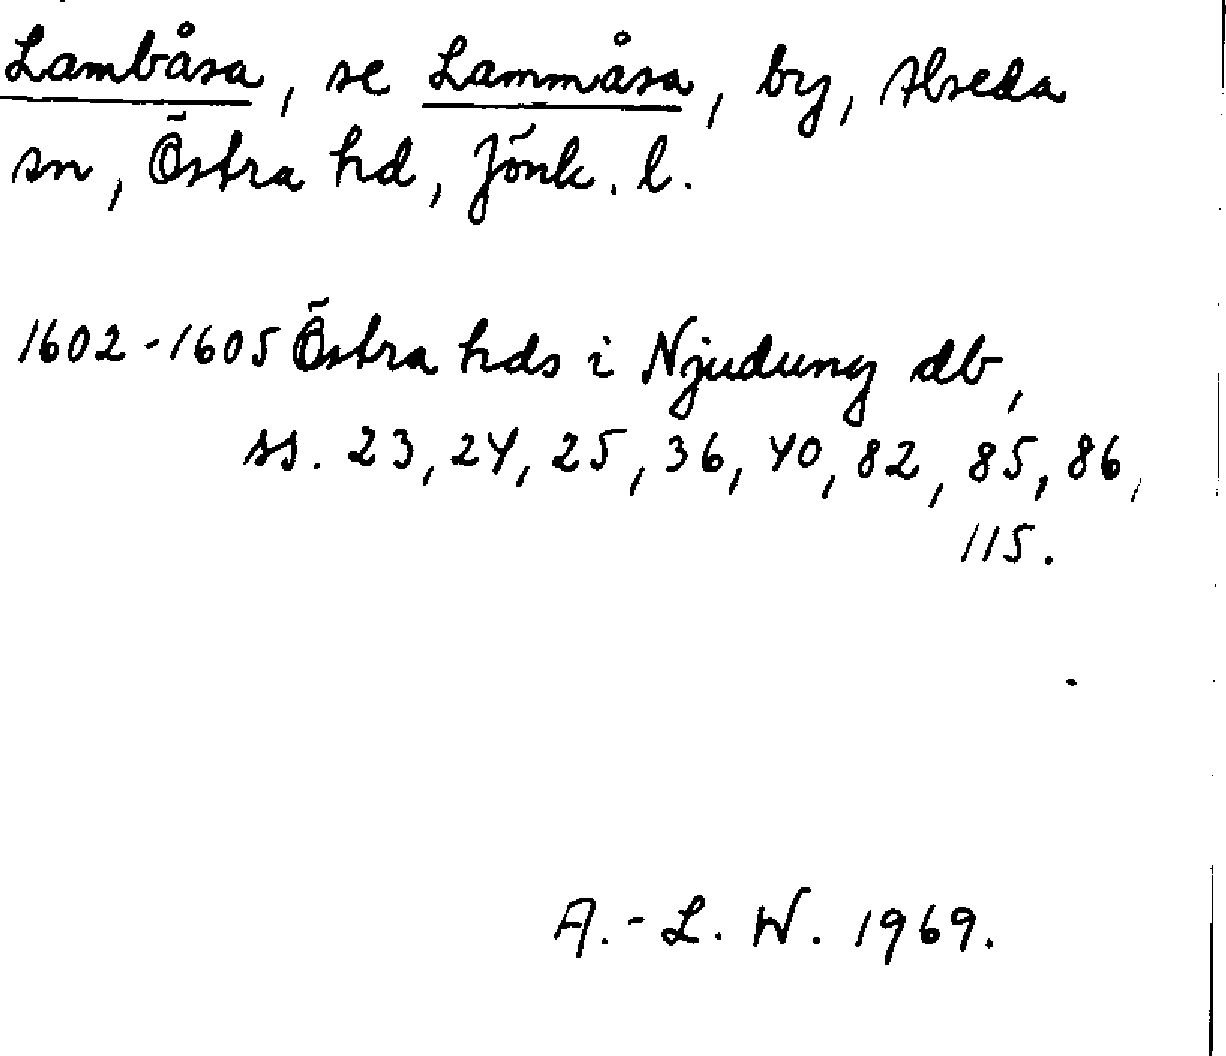 Lambåsa, se Lammåsa, by, Alseda
sn, Östra hd, Jönk. l.
1602-1605 Östra hds i Njudung db,
ss. 23, 24, 25, 36, 40, 82, 85, 86,
115.
A.-L. W. 1969.